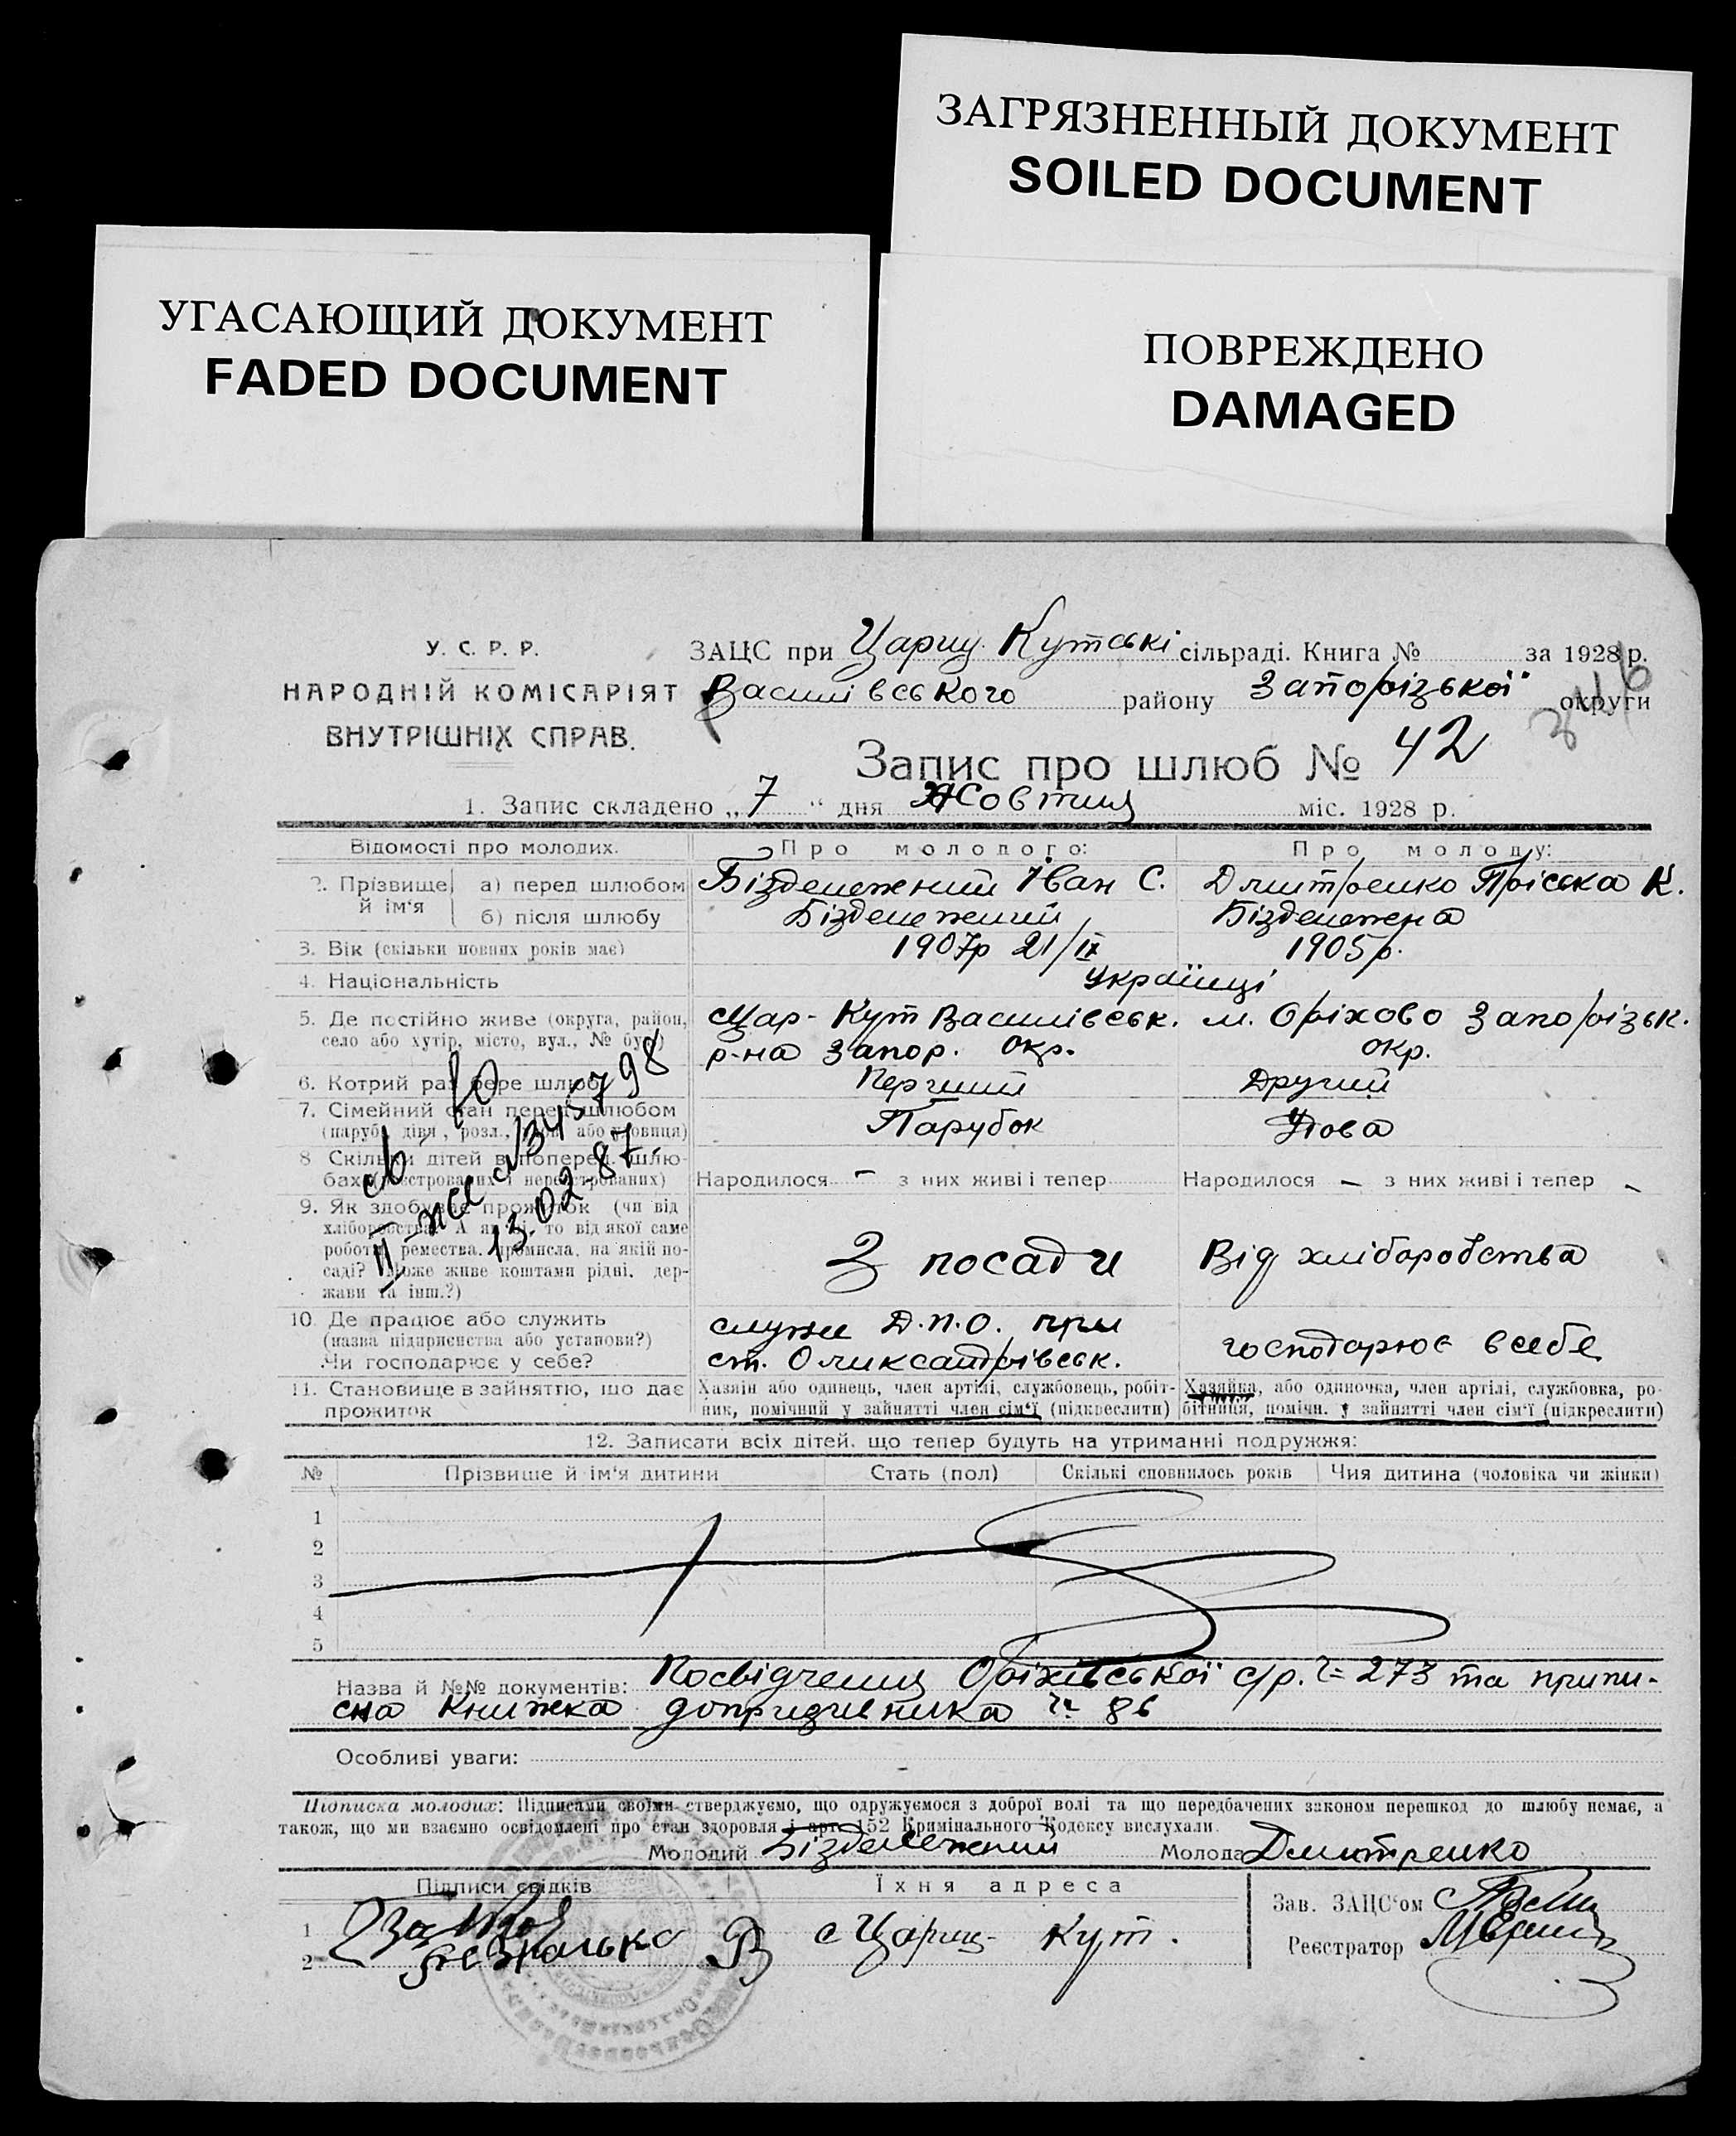 ЗАГРЯЗНЕННЫЙ ДОКУМЕНТ
SOILED DOCUMENT
УГАСАЮЩИЙ ДОКУМЕНТ
FADED DOCUMENT
ПОВРЕЖДЕНО
DAMAGED
У. С. Р. Р.
НАРОДНІЙ КОМІСАРІЯТ
ВНУТРІШНІХ СПРАВ.
ЗАЦС при Цариц. Кутські сільраді. Книга № за 1928 р.
Василівського району Запорізької округи
Запис про шлюб № 42
1. Запис складено „ 7 “ дня Жовтня міс. 1928 р.
Відомості про молодих. Про молодого: Про молоду:
2. Прізвище й ім'я а) перед шлюбом Безденежний Іван С. Дмитренко Пріська К.
б) після шлюбу Бізденежний Бізденежна
3. Вік (скільки повних років має) 1907р 21/IX 1905р.
4. Національність Українці
5. Де постійно живе (округа, район, Цар-Кут Василівськ. м. Оріхово Запорізьк.
село або хутір, місто, вул., № буд.) р-на Запор. окр. окр.
6. Котрий раз бере шлюб Перший Другий
7. Сімейний стан перед шлюбом Парубок Удова
(паруб., дівч., розл., або удовиця)
8 Скільки дітей в поперед. шлю-
бах (реєстрованих і нереєстрованих) Народилося - з них живі і тепер Народилося - з них живі і тепер -
9. Як здобуває прожиток (чи від
хліборобства? А як ні, то від якої саме
роботи, ремества, промисла, на якій по- З посади Від хліборобства
саді? Може живе коштами рідні, дер-
жави та інш.?)
10. Де працює або служить служе Д.П.О. при
(назва підприємства або установи?) ст. Олександрівськ. господарює в себе
Чи господарює у себе?
11. Становище в зайняттю, що дає Хазяїн або одинець, член артілі, службовець, робіт- Хазяйка, або одиночка, член артілі, службовка, ро-
прожиток ник, помічний у зайнятті член сім'ї (підкреслити) бітниця, помічн. у зайнятті член сім'ї (підкреслити)
II ж.с. №345798
13.02-87.
12. Записати всіх дітей, що тепер будуть на утриманні подружжя:
№ Прізвище й ім'я дитини Стать (пол) Скількі сповнилось років Чия дитина (чоловіка чи жінки)
1
2
3
4
5
Назва й №№ документів: Посвідчення Оріхівської с/р. ч= 273 та припи-
сна книжка допризивника ч= 86
Особливі уваги:
Підписка молодих: Підписами своїми стверджуємо, що одружуємося з доброї волі та що передбачених законом перешкод до шлюбу немає, а
також, що ми взаємно освідомлені про стан здоровля і арт. 152 Кримінального Кодексу вислухали.
Молодий Бізденежний Молода Дмитренко
Підписи свідків Їхня адреса
Зав. ЗАЦС'ом
1 с Цариц- Кут.
2 Реєстратор